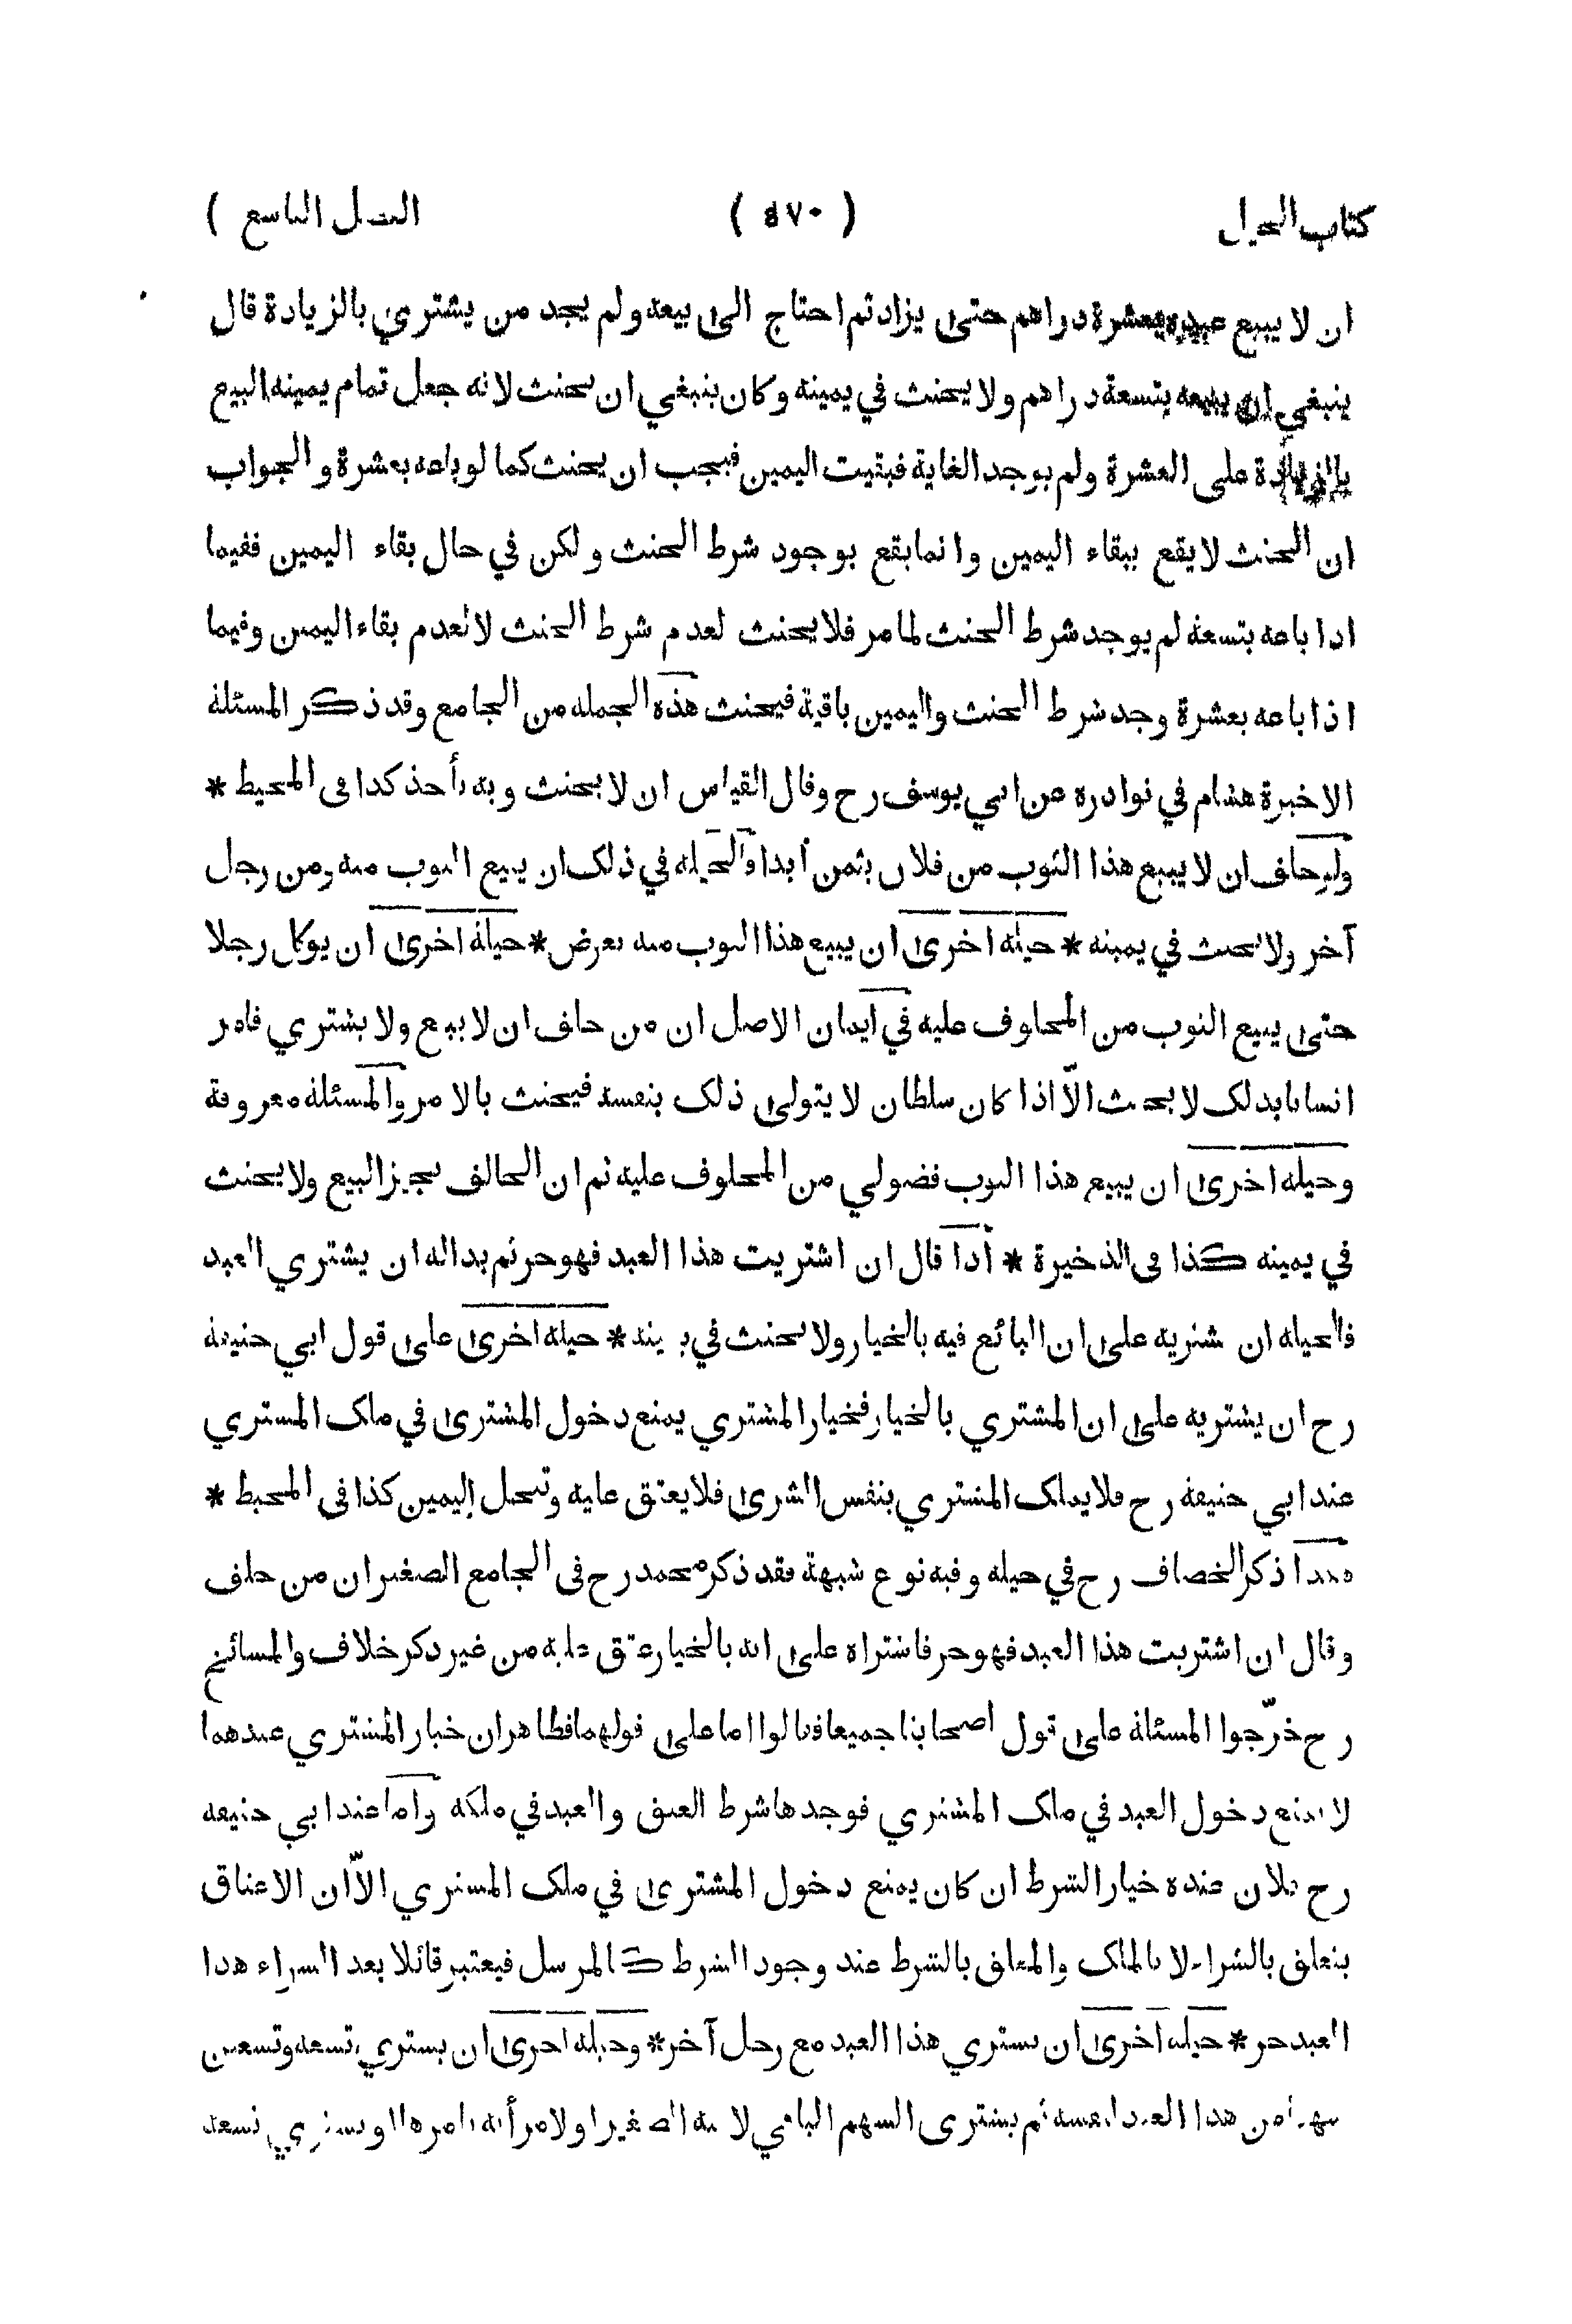 كتاب الحيل ( ٥٧٠ ) الفصل التاسع )
ان لا يبيع عبده بعشرة دراهم حتى يزاد ثم احتاج الى بيعه ولم يجد من يشتري بالزيادة قال
ينبغي ان يبيعه بتسعة دراهم ولا يحنث في يمينه وكان ينبغي ان يحنث لانه جعل تمام يمينه البيع
بالزيادة على العشرة ولم يوجد الغاية فبقيت اليمين فيجب ان يحنث كما لو باعه بعشرة والجواب
ان الحنث لا يقع ببقاء اليمين وانما يقع بوجود شرط الحنث ولكن في حال بقاء اليمين ففيما
اذا باعه بتسعة لم يوجد شرط الحنث لما مر فلا يحنث لعدم شرط الحنث لا لعدم بقاء اليمين وفيما
اذا باعه بعشرة وجد شرط الحنث واليمين باقية فيحنث هذه الجملة من الجامع وقد ذكر المسئلة
الاخيرة هشام في نوادره عن ابي يوسف رح وقال القياس ان لا يحنث وبه نأخذ كذا في المحيط *
ولو حلف ان لا يبيع هذا الثوب من فلان بثمن أبدا والحيلة في ذلك ان يبيع الثوب منه ومن رجل
آخر ولا يحنث في يمينه * حيلة اخرى ان يبيع هذا الثوب منه بعرض * حيلة اخرى ان يوكل رجلا
حتى يبيع الثوب من المحلوف عليه في ايمان الاصل ان من حلف ان لا يبيع ولا يشتري فامر
انسانا بذلك لا يحنث الّا اذا كان سلطان لا يتولى ذلك بنفسه فيحنث بالامر والمسئلة معروفة
وحيلة اخرى ان يبيع هذا الثوب فضولي من المحلوف عليه ثم ان الحالف يجيز البيع ولا يحنث
في يمينه كذا في الذخيرة * اذا قال ان اشتريت هذا العبد فهو حر ثم بدا له ان يشتري العبد
فالحيلة ان يشتريه على ان البائع فيه بالخيار ولا يحنث في يمينه * حيلة اخرى على قول ابي حنيفة
رح ان يشتريه على ان المشتري بالخيار فخيار المشتري يمنع دخول المشترى في ملك المشتري
عند ابي حنيفة رح فلا يملك المشتري بنفس الشرى فلا يعتق عليه وتنحل اليمين كذا في المحيط *
هكذا ذكر الخصاف رح في حيله وفيه نوع شبهة فقد ذكر محمد رح في الجامع الصغير ان من حلف
وقال ان اشتريت هذا العبد فهو حر فاشتراه على انه بالخيار عتق عليه من غير ذكر خلاف والمسائخ
رح خرّجوا المسئلة على قول اصحابنا جميعا فقالوا اما على قولهما فظاهر ان خيار المشتري عندهما
لا يمنع دخول العبد في ملك المشتري فوجدها شرط العتق والعبد في ملكه واما عند ابي حنيفة
رح فلان عنده خيار الشرط ان كان يمنع دخول المشترى في ملك المشتري الاّ ان الاعتاق
يتعلق بالشراء لا بالملك والمعلق بالشرط عند وجود الشرط كالمرسل فيعتبر قائلا بعد الشراء هذا
العبد حر * حيلة اخرى ان يشتري هذا العبد مع رجل آخر * وحيلة اخرى ان يشتري تسعة وتسعين
سهما من هذا العبد لنفسه ثم يشترى السهم الباقي لابنه الصغير او لامرأته بامرها او يشتري تسعة